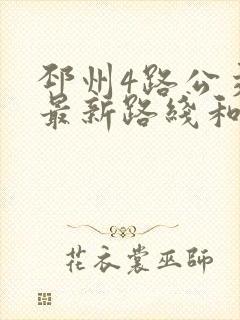 邳州4路公
最新路线和
花衣裳巫師